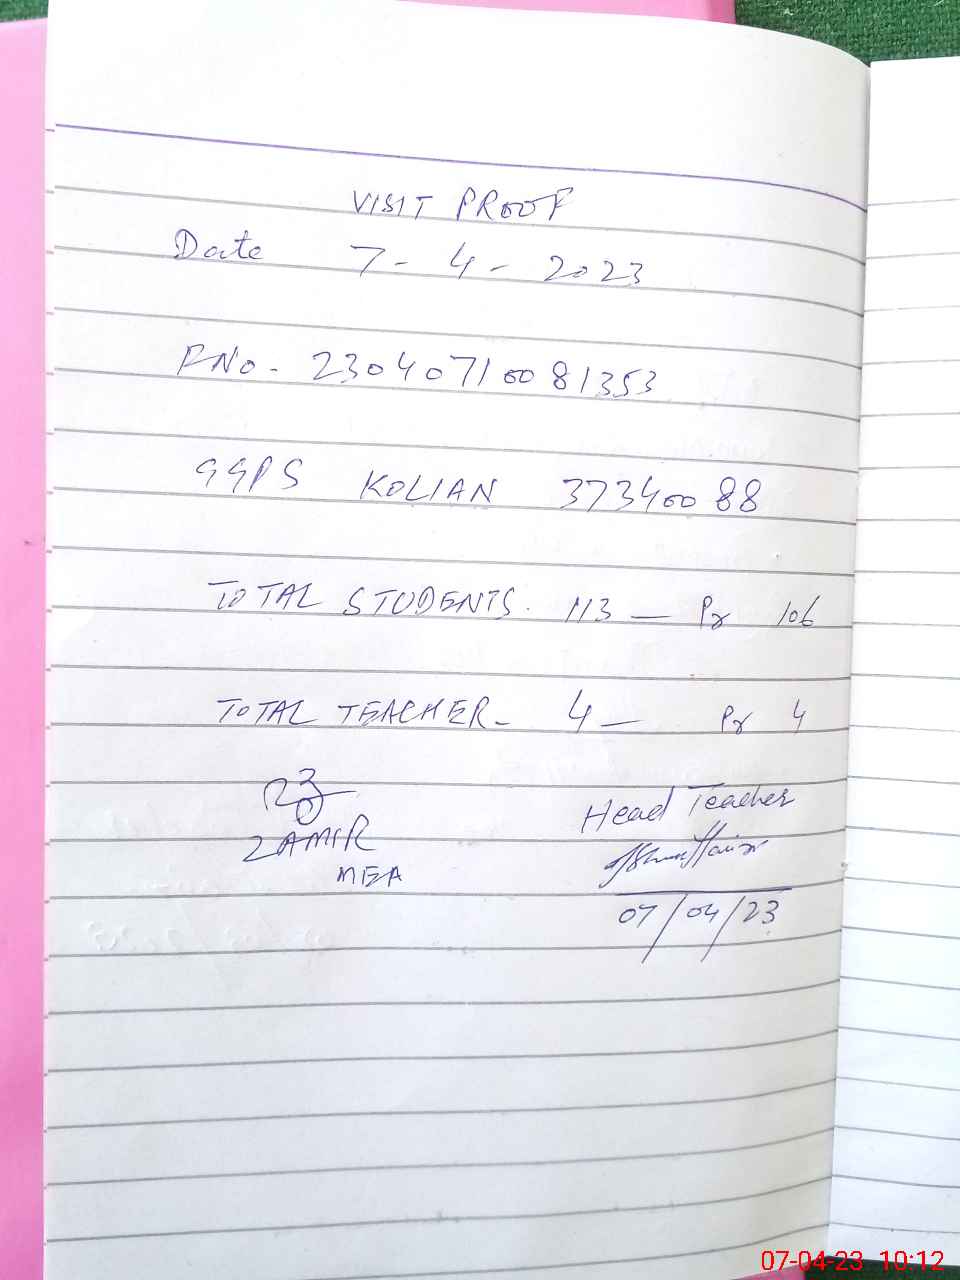 VISIT PROOF
Date 7-4-2023
PNo. 23040710081353
GGPS KOLIAN 37340088
TOTAL STUDENTS. 113 — Pr 106
TOTAL TEACHER- 4 — Pr 4
ZAMIR
MEA
Head Teacher
07/04/23
07-04-23 10:12